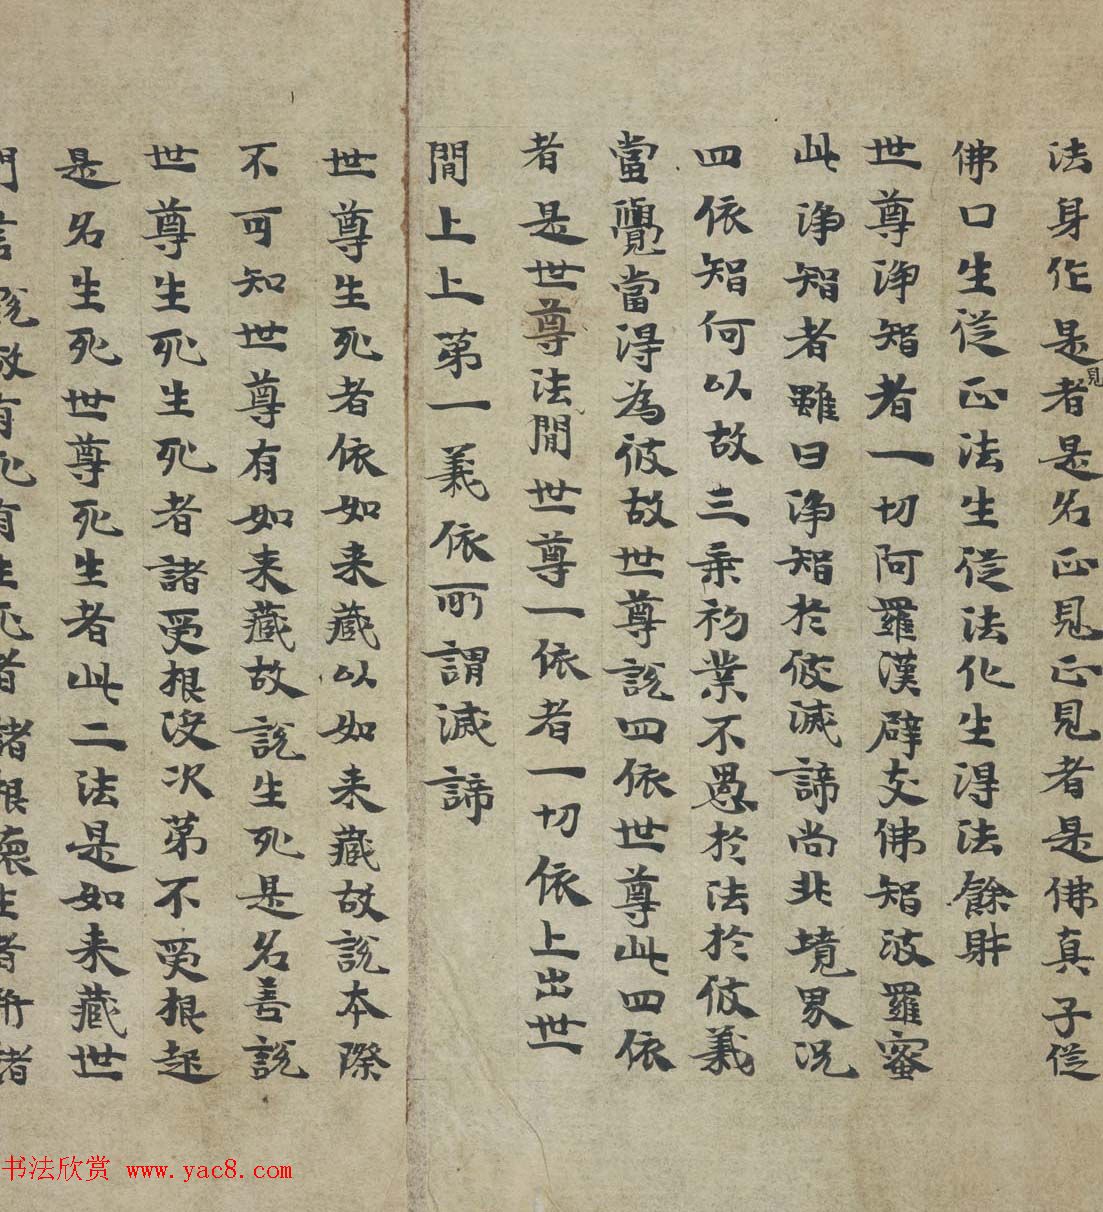 法身作是見者是名正見正見者是佛真子從
佛口生從正法生從法化生得法餘財
世尊淨智者一切阿羅漢辟支佛智波羅蜜
此淨智者雖曰淨智於彼滅諦尚非境界況
四依智何以故三乘初業不愚於法於彼義
當覺當得為彼故世尊說四依世尊此四依
者是世尊法間世尊一依者一切依上出世
間上上第一義依所謂滅諦
世尊生死者依如来藏以如来藏故說本際
不可知世尊有如来藏故說生死是名善說
世尊生死生死者諸受根沒次第不受根起
是名生死世尊死生者此二法是如来藏世
言說故有死有生死者諸根壞生者新諸
书法欣赏 www.yac8.com